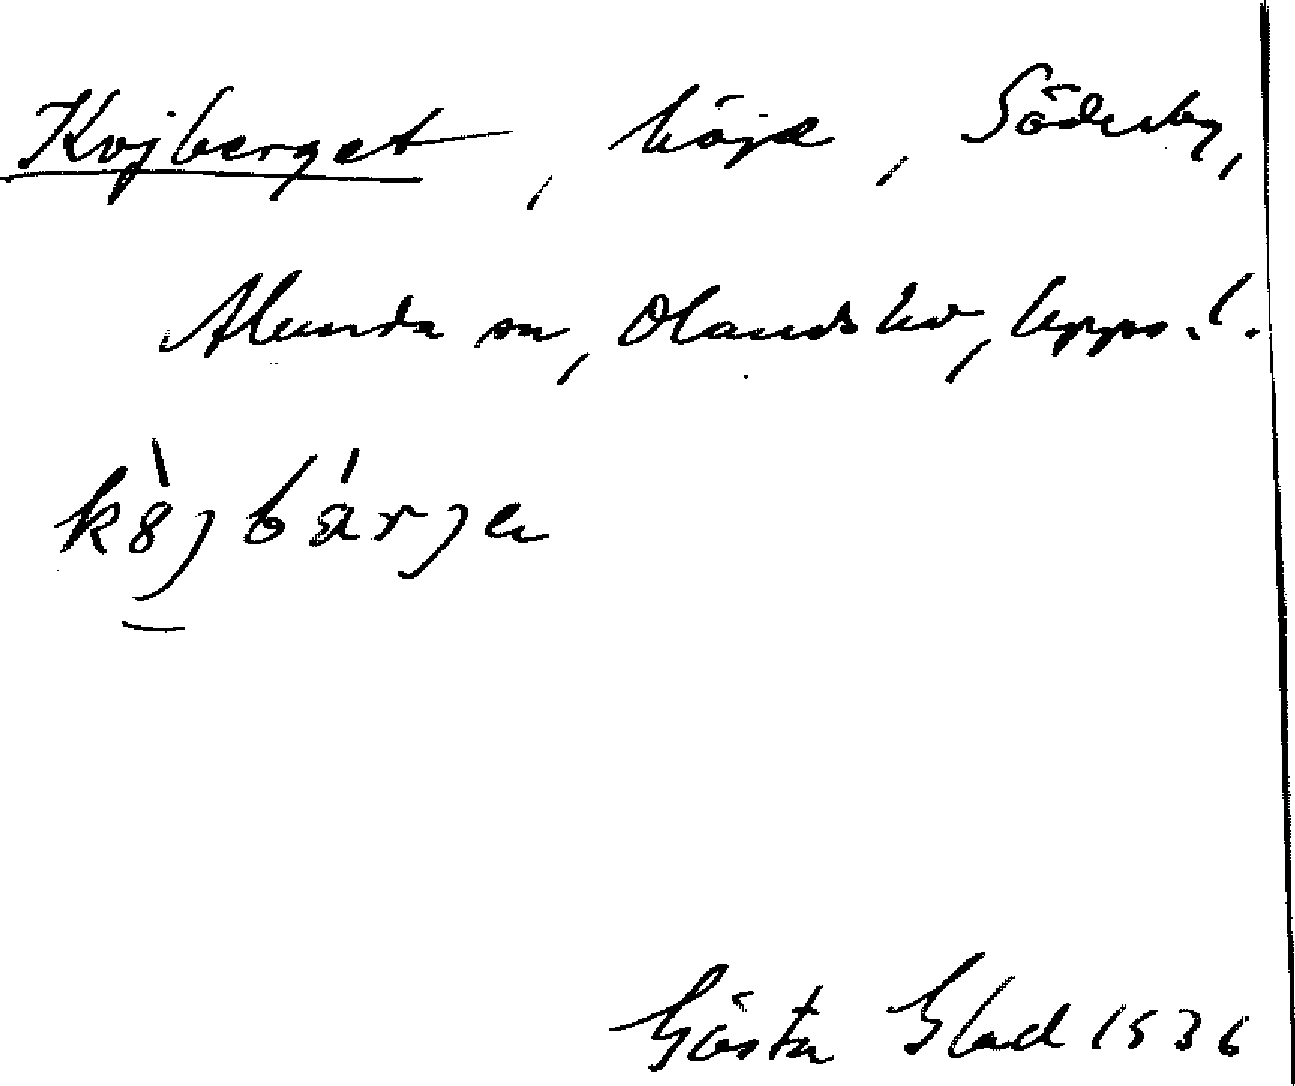 Kojberget, höjd, Söderby,
Alunda sn, Olands hd, Upps. l.
kȣ̀jbárje
Gösta Blad 1936